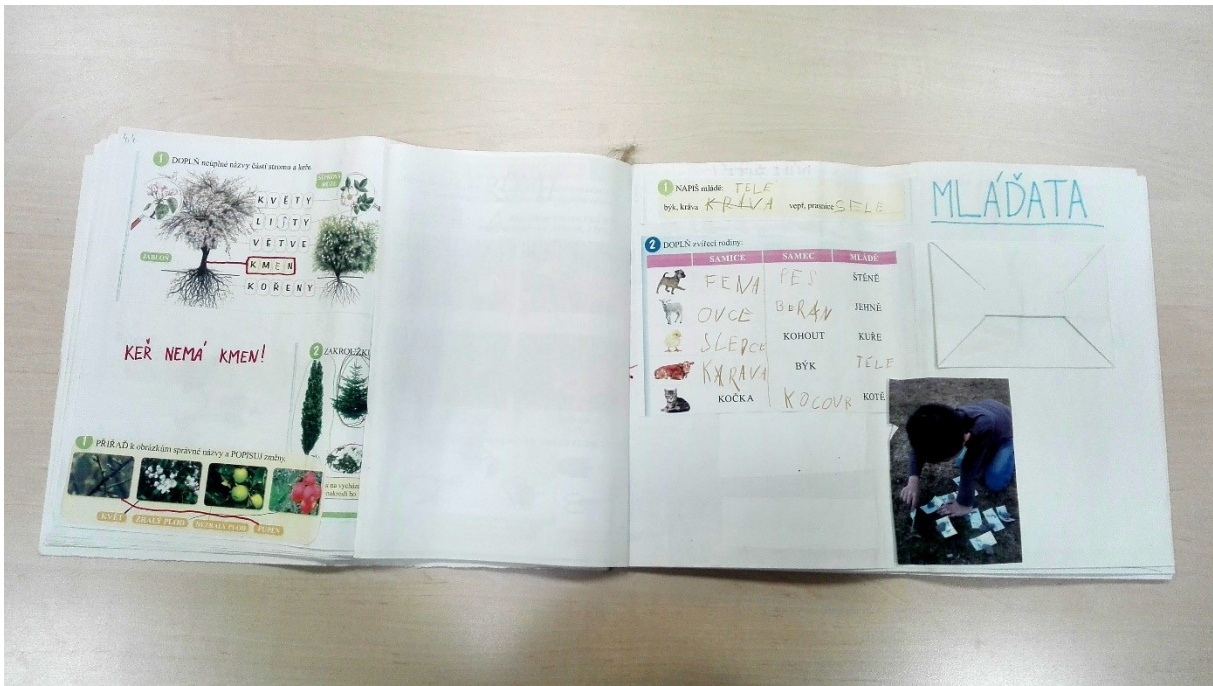 4.4
1 DOPLŇ neúplné názvy částí stromu a keře.
ŠÍPKOVÁ
RŮŽE
KVĚTY
LISTY
VĚTVE
JABLOŇ
KMEN
KOŘENY
KEŘ NEMÁ KMEN!
2 ZAKROUŽKUJ
a na vycház
nakresli ho.
1 PŘIŘAĎ k obrázkům správné názvy a POPISUJ změny.
KVĚT ZRALÝ PLOD NEZRALÝ PLOD PUPEN
1 NAPIŠ mládě: TELE
býk, kráva KRÁVA vepř, prasnice SELE
2 DOPLŇ zvířecí rodiny:
SAMICE SAMEC MLÁDĚ
FENA PES ŠTĚNĚ
OVCE BERAN JEHNĚ
SLEPCE KOHOUT KUŘE
KARAVA BÝK TELE
KOČKA KOCOUR KOTĚ
MLÁĎATA